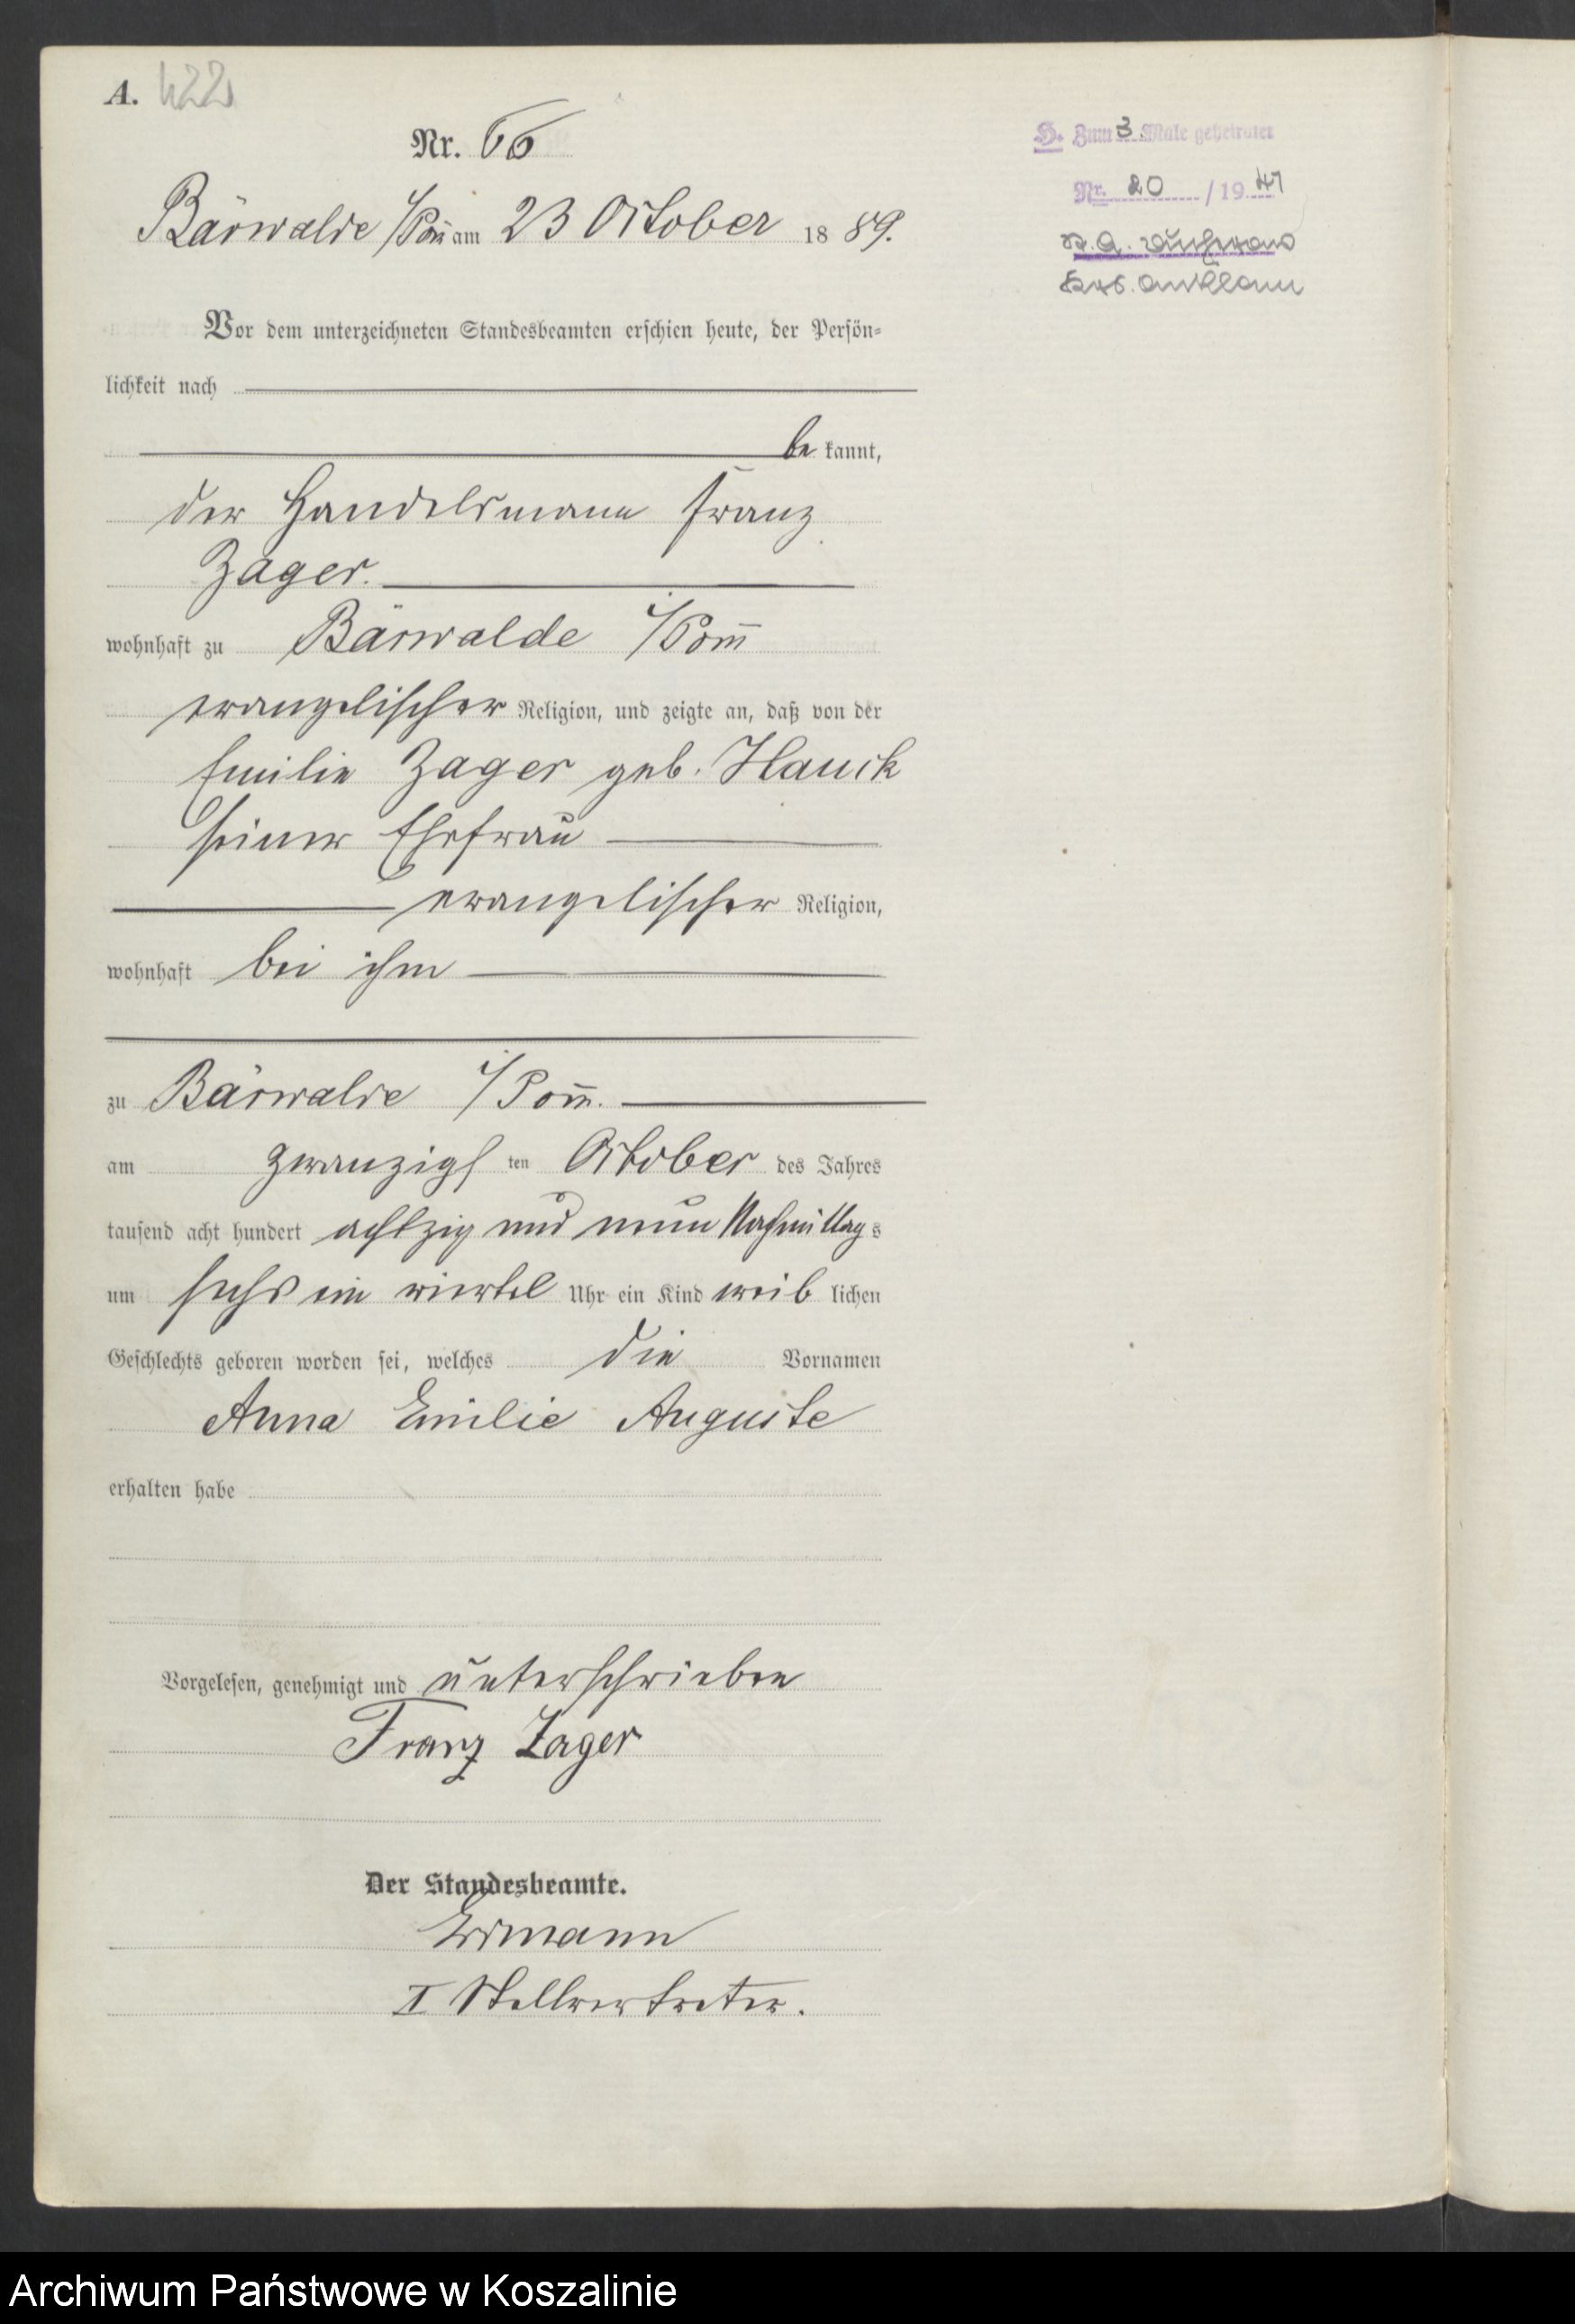 A. 422
Nr. 66
Bärwalde i/Pom̄ am 23 October 1889.
Vor dem unterzeichneten Standesbeamten erschien heute, der Persön-
lichkeit nach
be kannt,
der Handelsmann Franz
Zager.
wohnhaft zu Bärwalde i/Pom̄
evangelischer Religion, und zeigte an, daß von der
Emilie Zager geb. Hauck
seiner Ehefrau
evangelischer Religion,
wohnhaft bei ihm
zu Bärwalde i/Pom̄.
am zwanzigsten October des Jahres
tausend acht hundert achtzig und neun Nachmittags
um sechs ein viertel Uhr ein Kind weiblichen
Geschlechts geboren worden sei, welches die Vornamen
Anna Emilie Auguste
erhalten habe
Vorgelesen, genehmigt und unterschrieben
Franz Zager
Der Standesbeamte.
II Stellvertreter.
H. Zum 3 Male geheiratet
Nr. 20 / 1941
St. A.
Krs. Anklam
Archiwum Państwowe w Koszalinie